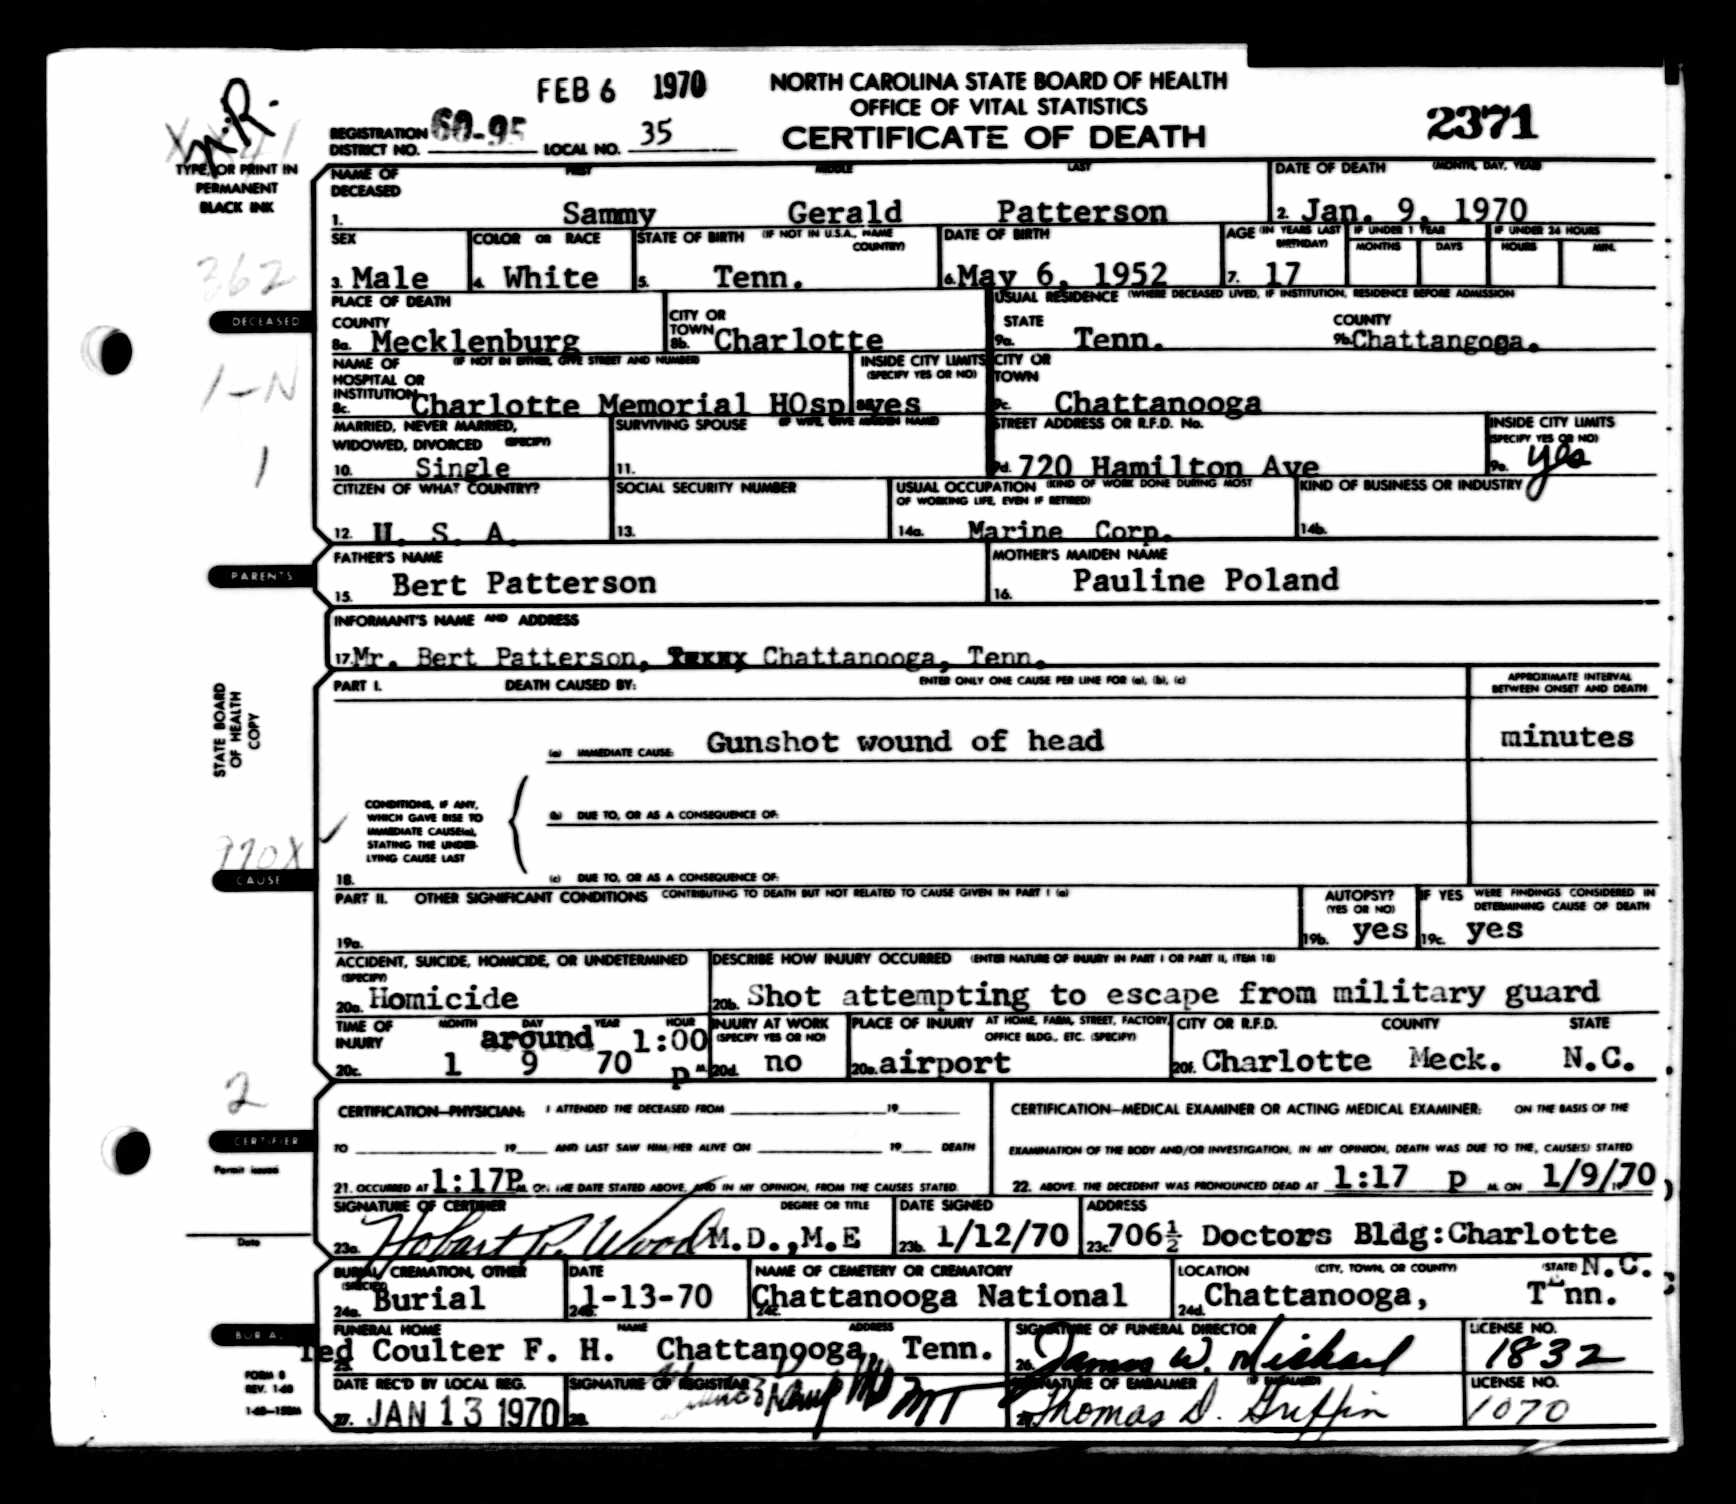 FEB 6 1970
NORTH CAROLINA STATE BOARD OF HEALTH
OFFICE OF VITAL STATISTICS
CERTIFICATE OF DEATH
2371
REGISTRATION DISTRICT NO. 60-95 LOCAL NO. 35
M.R.
TYPE, OR PRINT IN
PERMANENT
BLACK INK
NAME OF DECEASED FIRST MIDDLE LAST
1. Sammy Gerald Patterson
DATE OF DEATH (MONTH, DAY, YEAR)
2. Jan. 9, 1970
SEX
3. Male
COLOR OR RACE
4. White
STATE OF BIRTH (IF NOT IN U.S.A., NAME COUNTRY)
5. Tenn.
DATE OF BIRTH
6. May 6, 1952
AGE (IN YEARS LAST BIRTHDAY)
7. 17
IF UNDER 1 YEAR
MONTHS DAYS
IF UNDER 24 HOURS
HOURS MIN.
362
DECEASED
PLACE OF DEATH
COUNTY
8a. Mecklenburg
CITY OR TOWN
8b. Charlotte
USUAL RESIDENCE (WHERE DECEASED LIVED, IF INSTITUTION, RESIDENCE BEFORE ADMISSION
STATE
9a. Tenn.
COUNTY
9b. Chattangoga.
1-N
NAME OF HOSPITAL OR INSTITUTION (IF NOT IN EITHER, GIVE STREET AND NUMBER)
8c. Charlotte Memorial HOsp
INSIDE CITY LIMITS (SPECIFY YES OR NO)
yes
CITY OR TOWN
9c. Chattanooga
1
MARRIED, NEVER MARRIED, WIDOWED, DIVORCED (SPECIFY)
10. Single
SURVIVING SPOUSE (IF WIFE, GIVE MAIDEN NAME)
11.
STREET ADDRESS OR R.F.D. No.
9d. 720 Hamilton Ave
INSIDE CITY LIMITS (SPECIFY YES OR NO)
9e. yes
CITIZEN OF WHAT COUNTRY?
12. U. S. A.
SOCIAL SECURITY NUMBER
13.
USUAL OCCUPATION (KIND OF WORK DONE DURING MOST OF WORKING LIFE, EVEN IF RETIRED)
14a. Marine Corp.
KIND OF BUSINESS OR INDUSTRY
14b.
PARENTS
FATHER'S NAME
15. Bert Patterson
MOTHER'S MAIDEN NAME
16. Pauline Poland
INFORMANT'S NAME AND ADDRESS
17. Mr. Bert Patterson, Chattanooga, Tenn.
STATE BOARD
OF HEALTH
COPY
PART I. DEATH CAUSED BY: ENTER ONLY ONE CAUSE PER LINE FOR (a), (b), (c)
APPROXIMATE INTERVAL BETWEEN ONSET AND DEATH
(a) IMMEDIATE CAUSE: Gunshot wound of head
minutes
CONDITIONS, IF ANY,
WHICH GAVE RISE TO
IMMEDIATE CAUSE(a),
STATING THE UNDER-
LYING CAUSE LAST
(b) DUE TO, OR AS A CONSEQUENCE OF:
970X
CAUSE
18. (c) DUE TO, OR AS A CONSEQUENCE OF:
PART II. OTHER SIGNIFICANT CONDITIONS CONTRIBUTING TO DEATH BUT NOT RELATED TO CAUSE GIVEN IN PART I (a)
19a.
AUTOPSY? (YES OR NO)
19b. yes
IF YES WERE FINDINGS CONSIDERED IN DETERMINING CAUSE OF DEATH
19c. yes
ACCIDENT, SUICIDE, HOMICIDE, OR UNDETERMINED (SPECIFY)
20a. Homicide
DESCRIBE HOW INJURY OCCURRED (ENTER NATURE OF INJURY IN PART I OR PART II, ITEM 18)
20b. Shot attempting to escape from military guard
TIME OF INJURY MONTH DAY YEAR HOUR
around 1:00
20c. 1 9 70 p M.
INJURY AT WORK (SPECIFY YES OR NO)
20d. no
PLACE OF INJURY AT HOME, FARM, STREET, FACTORY, OFFICE BLDG., ETC. (SPECIFY)
20e. airport
CITY OR R.F.D. COUNTY STATE
20f. Charlotte Meck. N.C.
2
CERTIFIER
Permit issued
Date
CERTIFICATION—PHYSICIAN: I ATTENDED THE DECEASED FROM 19
TO 19 AND LAST SAW HIM/HER ALIVE ON 19 DEATH
21. OCCURRED AT 1:17P M. ON THE DATE STATED ABOVE, AND IN MY OPINION, FROM THE CAUSES STATED.
CERTIFICATION—MEDICAL EXAMINER OR ACTING MEDICAL EXAMINER: ON THE BASIS OF THE
EXAMINATION OF THE BODY AND/OR INVESTIGATION, IN MY OPINION, DEATH WAS DUE TO THE, CAUSE(S) STATED
22. ABOVE. THE DECEDENT WAS PRONOUNCED DEAD AT 1:17 p M. ON 1/9/70
SIGNATURE OF CERTIFIER DEGREE OR TITLE
23a. Hobart R. Wood M.D.,M.E
DATE SIGNED
23b. 1/12/70
ADDRESS
23c. 706½ Doctors Bldg:Charlotte
N.C.
BURIAL, CREMATION, OTHER (SPECIFY)
24a. Burial
DATE
24b. 1-13-70
NAME OF CEMETERY OR CREMATORY
24c. Chattanooga National
LOCATION (CITY, TOWN, OR COUNTY) (STATE)
24d. Chattanooga, Tenn.
BURIAL
FUNERAL HOME NAME ADDRESS
25. Ted Coulter F. H. Chattanooga, Tenn.
SIGNATURE OF FUNERAL DIRECTOR
26. James W. Mishael
LICENSE NO.
1832
FORM 8
REV. 1-68
1-68—150M
DATE REC'D BY LOCAL REG.
27. JAN 13 1970
SIGNATURE OF REGISTRAR
28.
SIGNATURE OF EMBALMER (IF EMBALMED)
29. Thomas D. Griffin
LICENSE NO.
1070